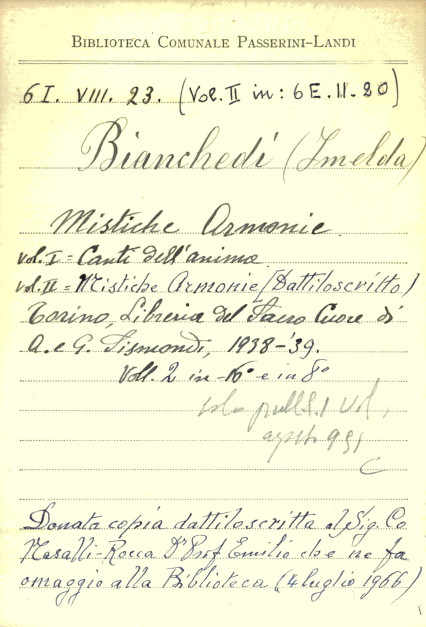 BIBLIOTECA COMUNALE PASSERINI-LANDI
6I. VIII. 23. (Vol. II in: 6E.II-20)
Bianchedi (Imelda)
Mistiche Armonie
vol. I = Canti dell'anima
vol. II = Mistiche Armonie (Dattiloscritto)
Torino, Libreria del Sacro Cuore di
A. e G. Sismondi, 1938-'39.
Voll. 2 in-16° e in 8°
vol.
Donata copia dattiloscritta al Sig. Co
Nasalli-Rocca Dr Prof Emilio che ne fa
omaggio alla Biblioteca (4 luglio 1966)